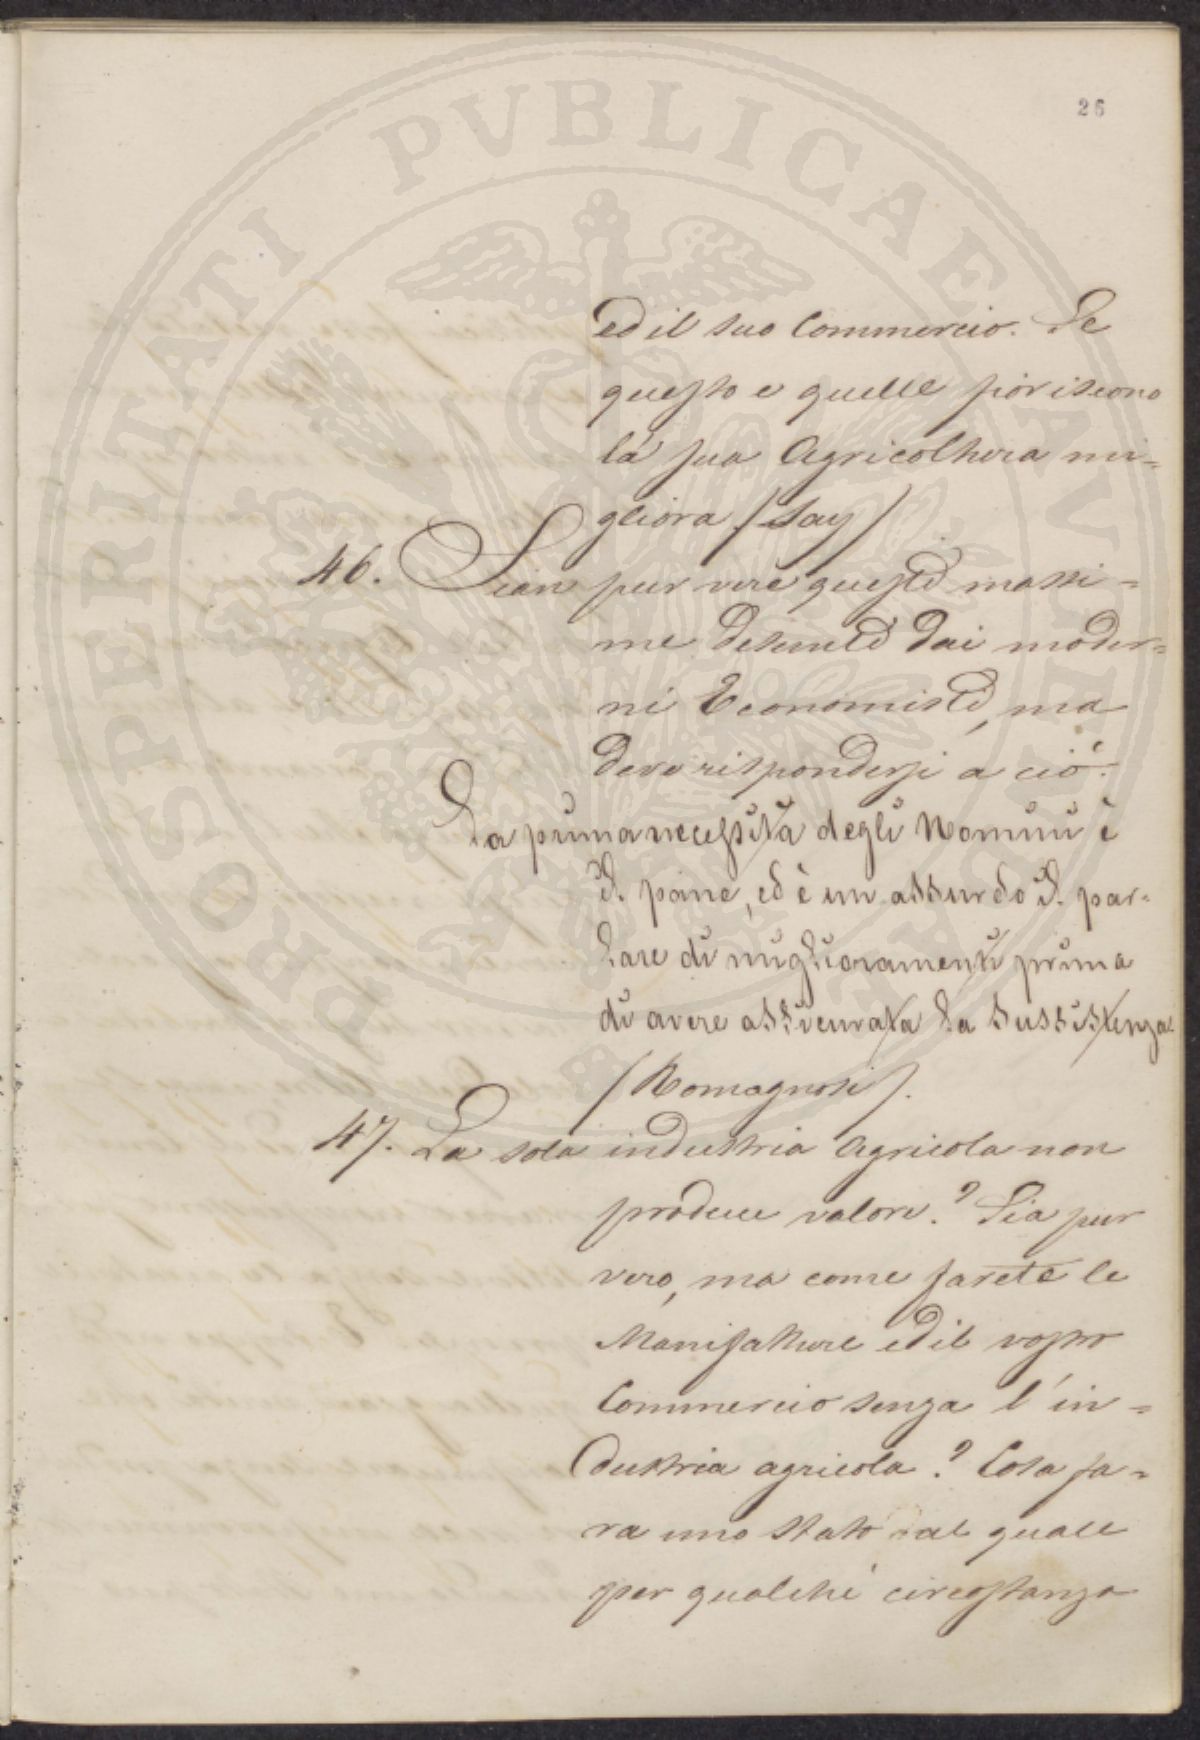 26
ed il suo Commercio. Se
questo e quelle fioriscono
la sua Agricoltura mi=
gliora /Say/
46. Sian pur vere queste massi=
me desunte dai moder=
ni Economisti, ma
deve rispondersi a ciò.
La prima necessità degli Uomini è
il pane, ed è un assurdo il par=
lare di miglioramenti prima
di avere assicurata la sussistenza
/Romagnosi/.
47. La sola industria Agricola non
produce valore? Sia pur
vero, ma come farete le
Manifatture ed il vostro
Commercio senza l'in=
dustria agricola? Cosa fa=
ra uno Stato al quale
per qualche circostanza
PROSPERITATI PVBLICAE AVGENDAE